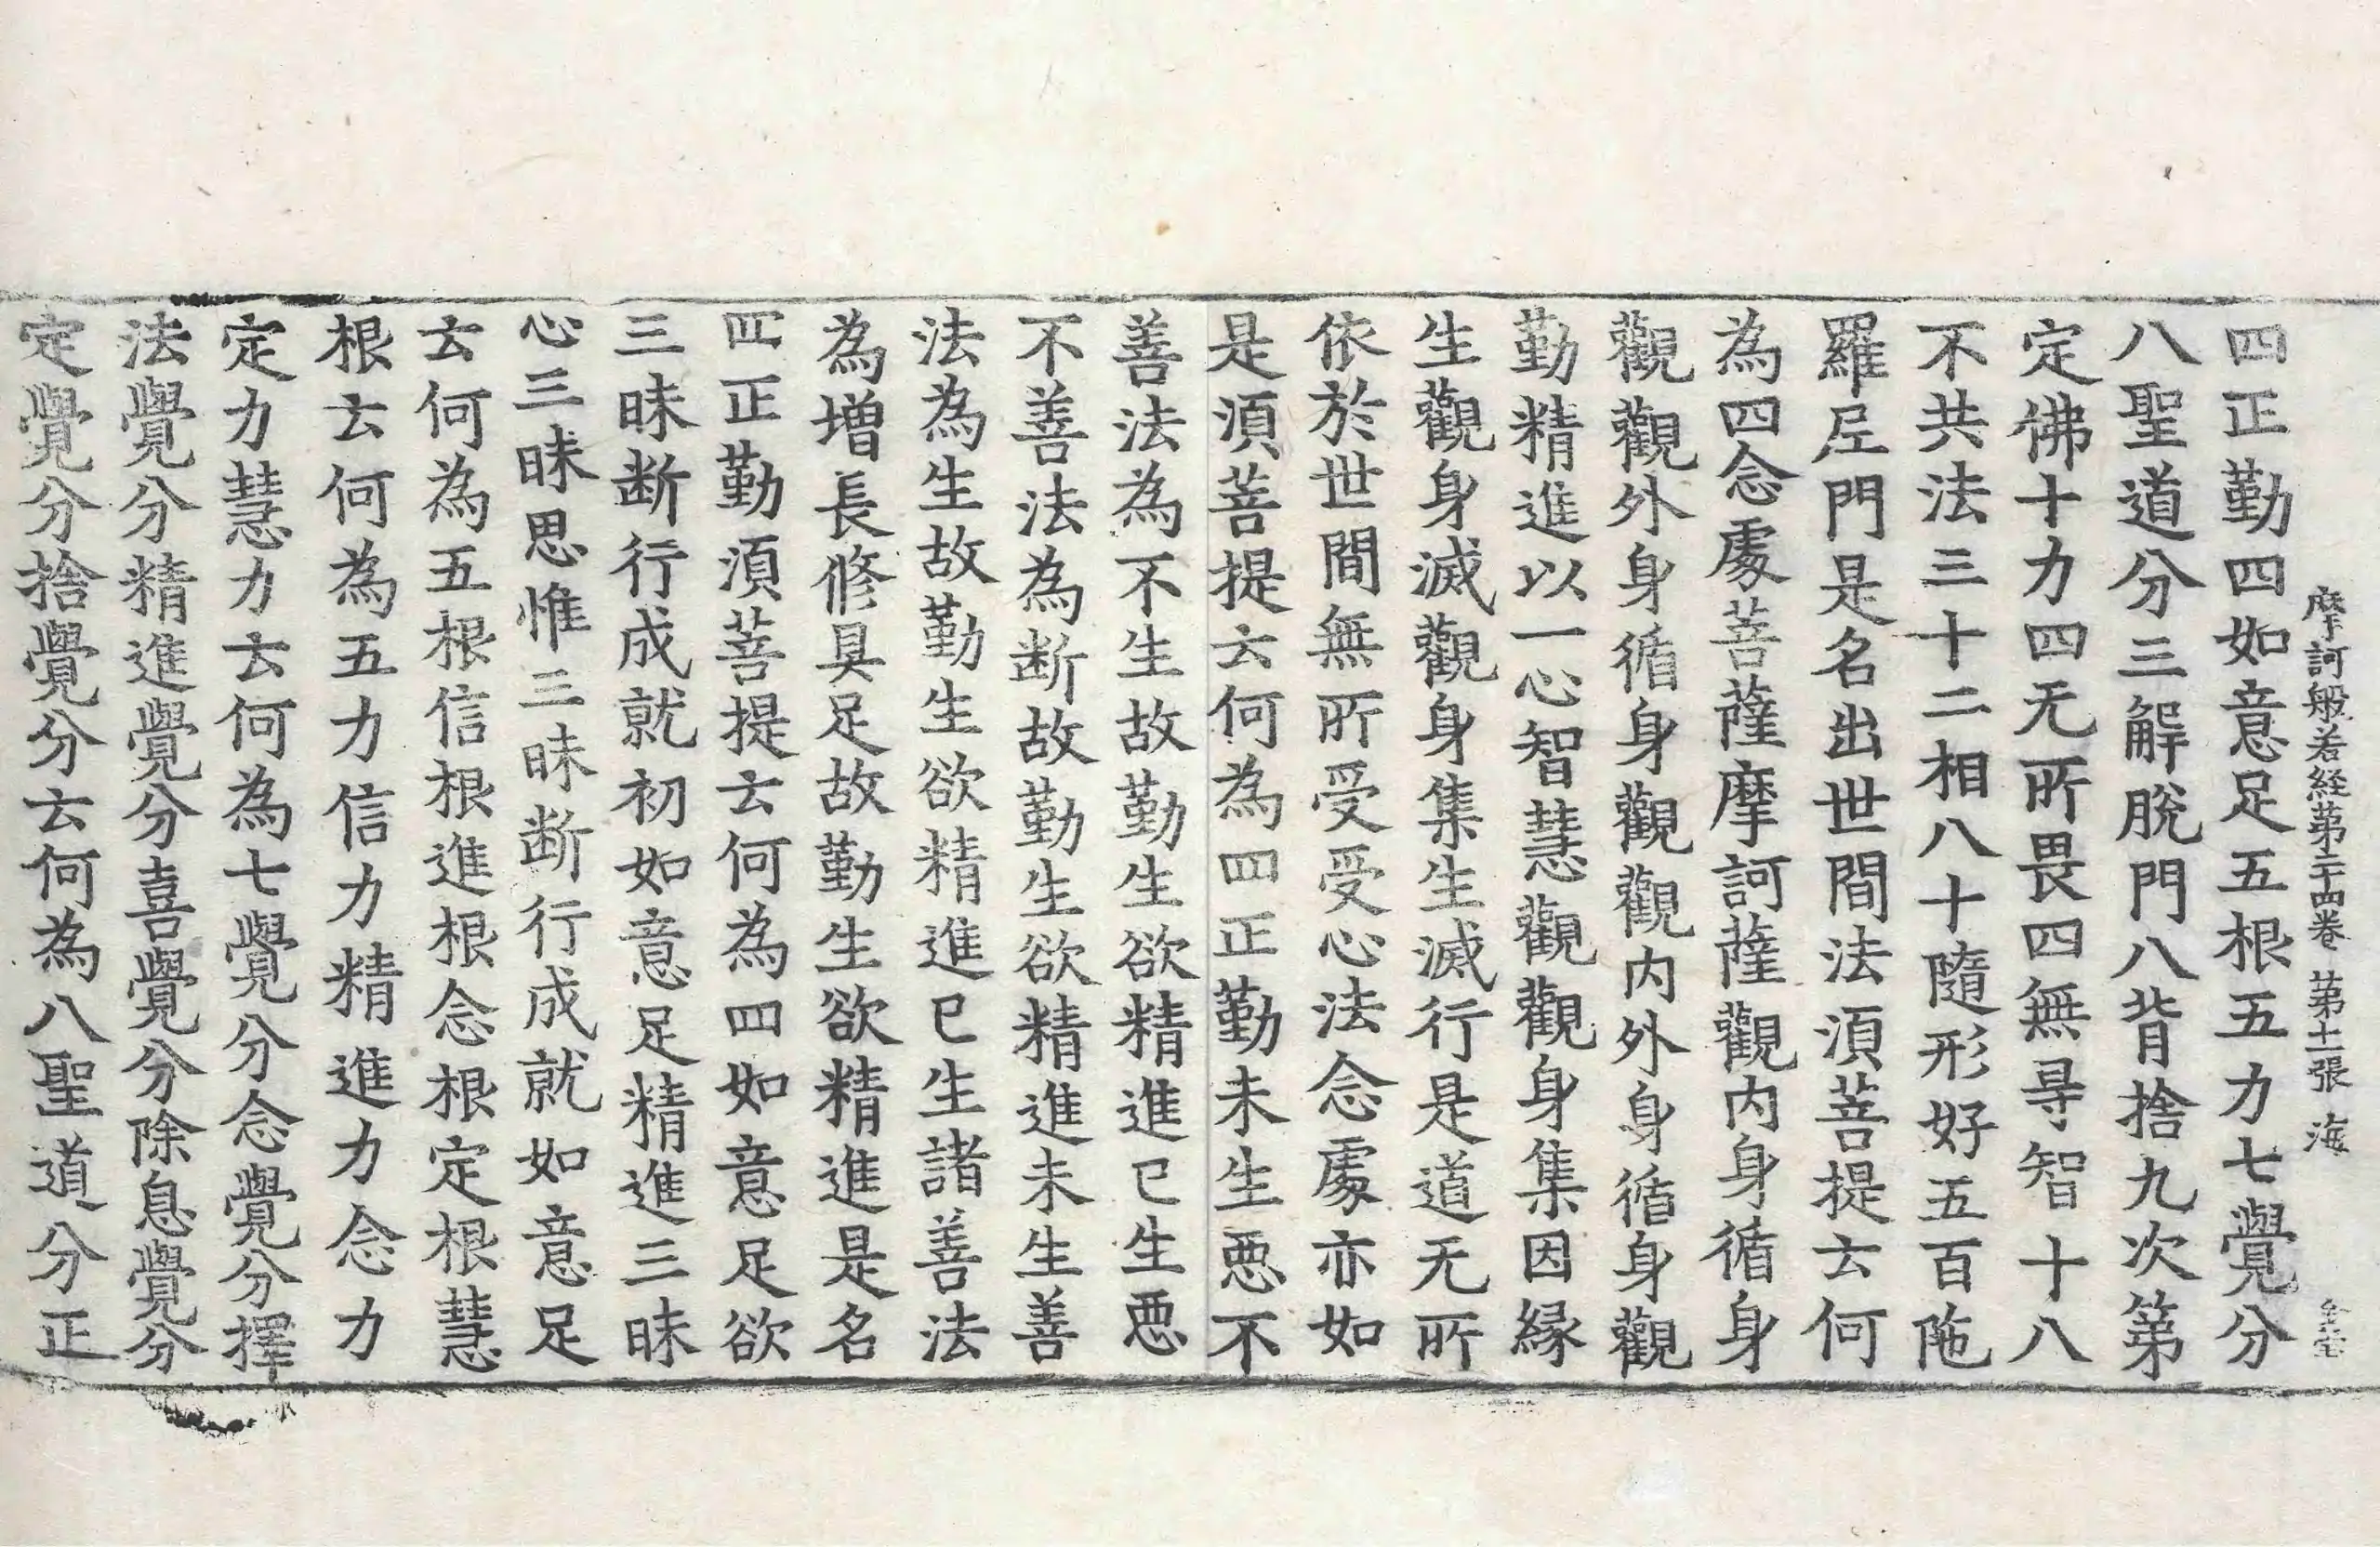 摩訶般若経第二十四卷 第十二張 海
四正勤四如意足五根五力七覺分
八聖道分三解脫門八背捨九次第
定佛十力四无所畏四無㝵智十八
不共法三十二相八十隨形好五百陁
羅𡰱門是名出世間法須菩提云何
為四念處菩薩摩訶薩觀内身循身
觀觀外身循身觀觀内外身循身觀
勤精進以一心智慧觀觀身集因緣
生觀身滅觀身集生滅行是道无所
依於世間無所受受心法念處亦如
是湏菩提云何為四正勤未生惡不
善法為不生故勤生欲精進已生惡
不善法為断故勤生欲精進未生善
法為生故勤生欲精進已生諸善法
為增長修具足故勤生欲精進是名
四正勤湏菩提云何為四如意足欲
三昧断行成就初如意足精進三昧
心三昧思惟三昧断行成就如意足
云何為五根信根進根念根定根慧
根云何為五力信力精進力念力
定力慧力云何為七覺分念覺分擇
法覺分精進覺分喜覺分除息覺分
定覺分捨覺分云何為八聖道分正